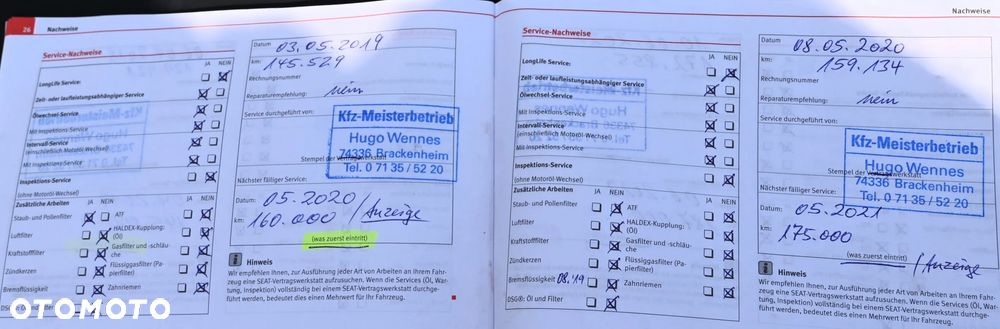 26
Nachweise
Service-Nachweise
JA NEIN
LongLife Service:
Zeit- oder laufleistungsabhängiger Service
Ölwechsel-Service
Mit Inspektions-Service
Intervall-Service
(einschließlich Motoröl-Wechsel)
Mit Inspektions-Service
Inspektions-Service
(ohne Motoröl-Wechsel)
Zusätzliche Arbeiten JA NEIN JA NEIN
Staub- und Pollenfilter ATF
Luftfilter HALDEX-Kupplung:
(Öl)
Kraftstofffilter Gasfilter und -schläu-
che
Zündkerzen Flüssiggasfilter (Pa-
pierfilter)
Bremsflüssigkeit Zahnriemen
Datum 03.05.2019
km: 145.529
Rechnungsnummer
Reparaturempfehlung: nein
Service durchgeführt von:
Kfz-Meisterbetrieb
Hugo Wennes
74336 Brackenheim
Tel. 0 71 35 / 52 20
Stempel der Vertragswerkstatt
Nächster fälliger Service:
Datum: 05.2020
km: 160.000 / Anzeige
(was zuerst eintritt)
Hinweis
Wir empfehlen Ihnen, zur Ausführung jeder Art von Arbeiten an Ihrem Fahr-
zeug eine SEAT-Vertragswerkstatt aufzusuchen. Wenn die Services (Öl, War-
tung, Inspektion) vollständig bei einem SEAT-Vertragswerkstatt durchge-
führt werden, bedeutet dies einen Mehrwert für Ihr Fahrzeug.
Nachweise
Service-Nachweise
JA NEIN
LongLife Service:
Zeit- oder laufleistungsabhängiger Service
Ölwechsel-Service
Mit Inspektions-Service
Intervall-Service
(einschließlich Motoröl-Wechsel)
Mit Inspektions-Service
Inspektions-Service
(ohne Motoröl-Wechsel)
Zusätzliche Arbeiten JA NEIN JA NEIN
Staub- und Pollenfilter ATF
Luftfilter HALDEX-Kupplung:
(Öl)
Kraftstofffilter Gasfilter und -schläu-
che
Zündkerzen Flüssiggasfilter (Pa-
pierfilter)
Bremsflüssigkeit 08.19 Zahnriemen
DSG®: Öl und Filter
Datum 08.05.2020
km: 159.134
Rechnungsnummer
Reparaturempfehlung: nein
Service durchgeführt von:
Kfz-Meisterbetrieb
Hugo Wennes
74336 Brackenheim
Tel. 0 71 35 / 52 20
Stempel der Vertragswerkstatt
Nächster fälliger Service:
Datum: 05.2021
km: 175.000
(was zuerst eintritt) / Anzeige
Hinweis
Wir empfehlen Ihnen, zur Ausführung jeder Art von Arbeiten an Ihrem Fahr-
zeug eine SEAT-Vertragswerkstatt aufzusuchen. Wenn die Services (Öl, War-
tung, Inspektion) vollständig bei einem SEAT-Vertragswerkstatt durchge-
führt werden, bedeutet dies einen Mehrwert für Ihr Fahrzeug.
OTOMOTO